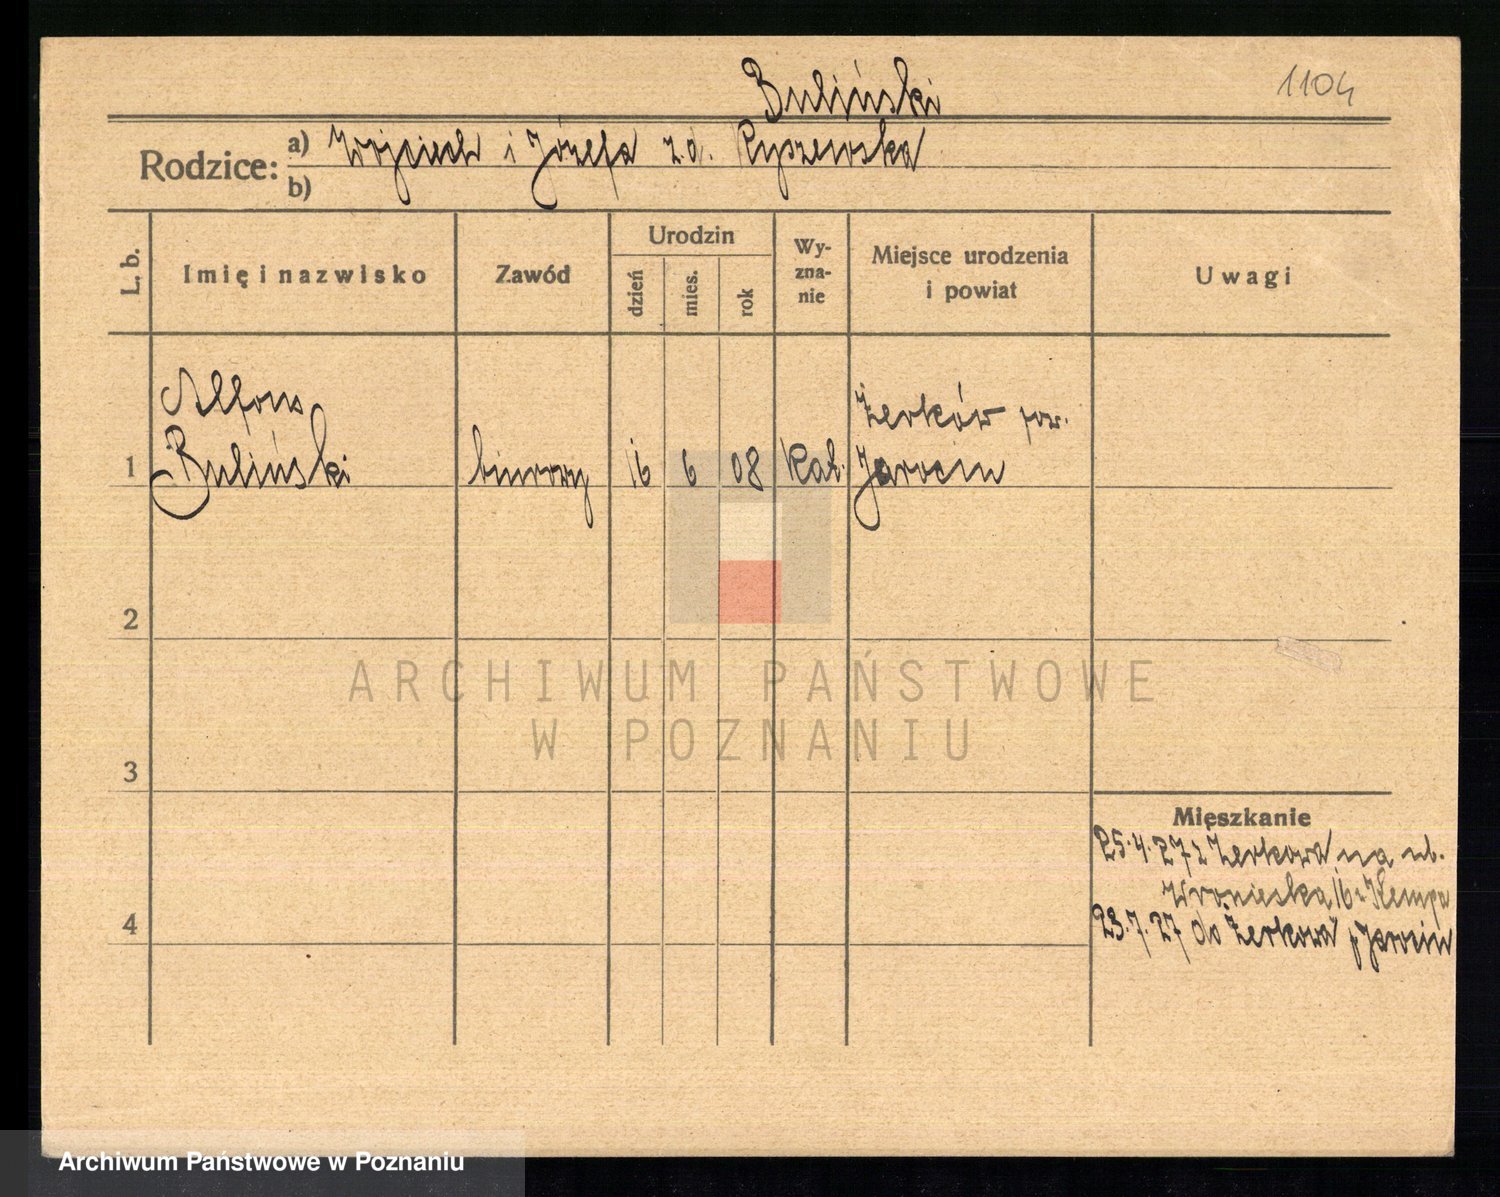 Buliński
1104
Rodzice:
a) Wojciech i Józefa z d. Ryszewska
b)
L. b.
Imię i nazwisko
Zawód
Urodzin
dzień
mies.
rok
Wy-
zna-
nie
Miejsce urodzenia
i powiat
Uwagi
Alfons
Żerków pow.
1 Buliński biurowy 16 6 08 Kat. Jarocin
2
ARCHIWUM PAŃSTWOWE
W POZNANIU
3
Mieszkanie
25.4.27 z Żerkowa na ul.
Wroniecka 16 Kempa
4
23.7.27 do Żerkowa p Jarocin
Archiwum Państwowe w Poznaniu